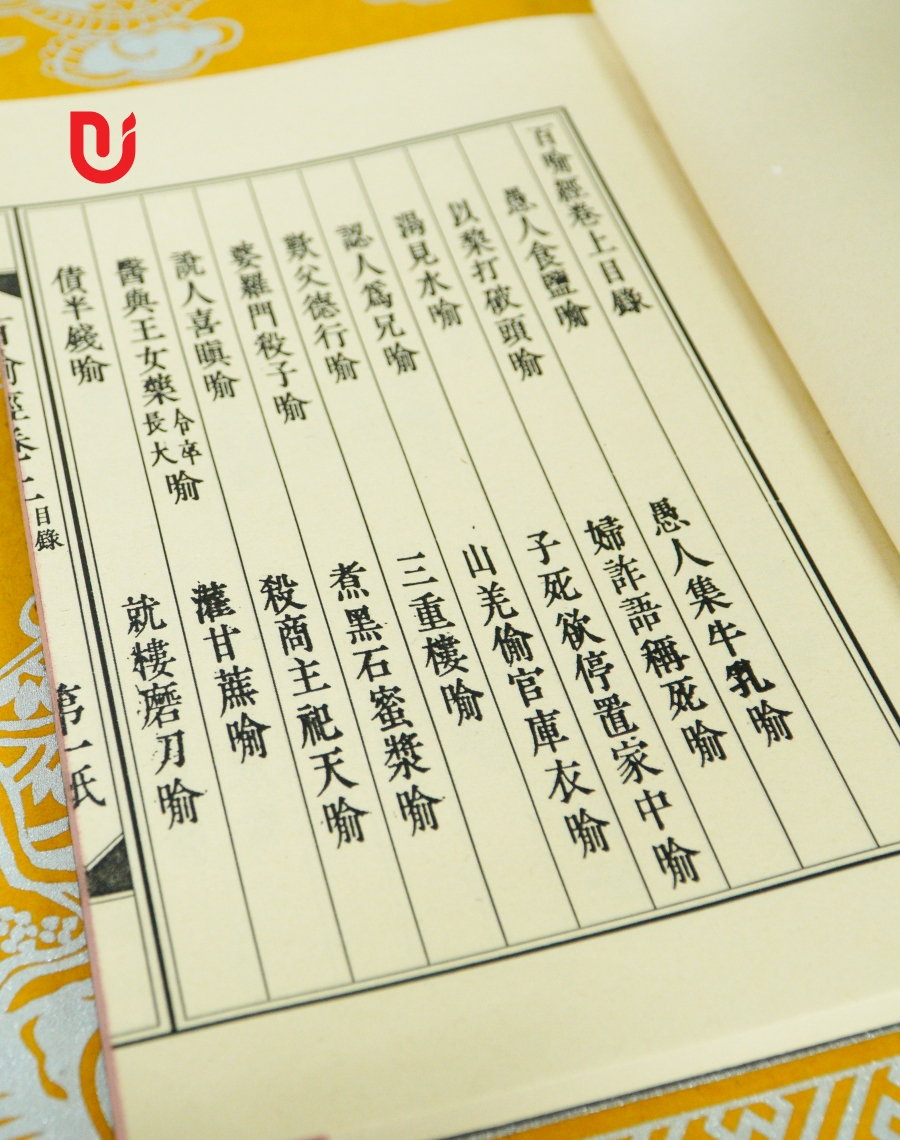 百喻經卷上目錄
愚人食鹽喻　愚人集牛乳喻
以棃打破頭喻　婦詐語稱死喻
渴見水喻　子死欲停置家中喻
認人爲兄喻　山羌偷官庫衣喻
歎父德行喻　三重樓喻
婆羅門殺子喻　煮黑石蜜漿喻
說人喜瞋喻　殺商主祀天喻
醫與王女藥令卒長大喻　灌甘蔗喻
債半錢喻　就樓磨刀喻
目錄